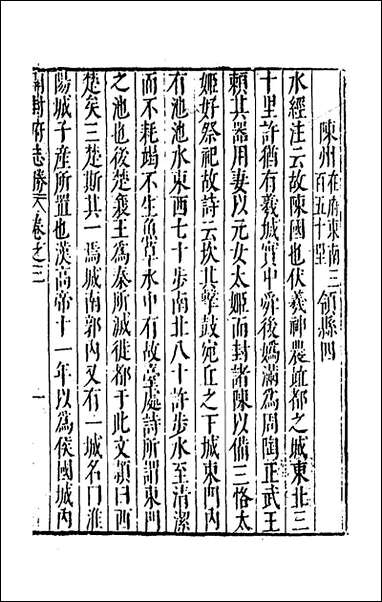 陳州在府東南三百五十里領縣四
水經注云故陳國也伏羲神農並都之城東北三
十里許猶有羲城實中舜後媯滿為周陶正武王
賴其器用妻以元女太姬而封諸陳以備三恪太
姬好祭祀故詩云坎其擊鼓宛丘之下城東門內
有池池水東西七十步南北八十許步水至清潔
而不耗竭不生魚草水中有故臺處詩所謂東門
之池也後楚襄王為秦所滅徙都于此文潁曰西
楚矣三楚斯其一焉城南郭內又有一城名曰淮
陽城子產所置也漢高帝十一年以為侯國城內
開封府志勝 卷之三 一